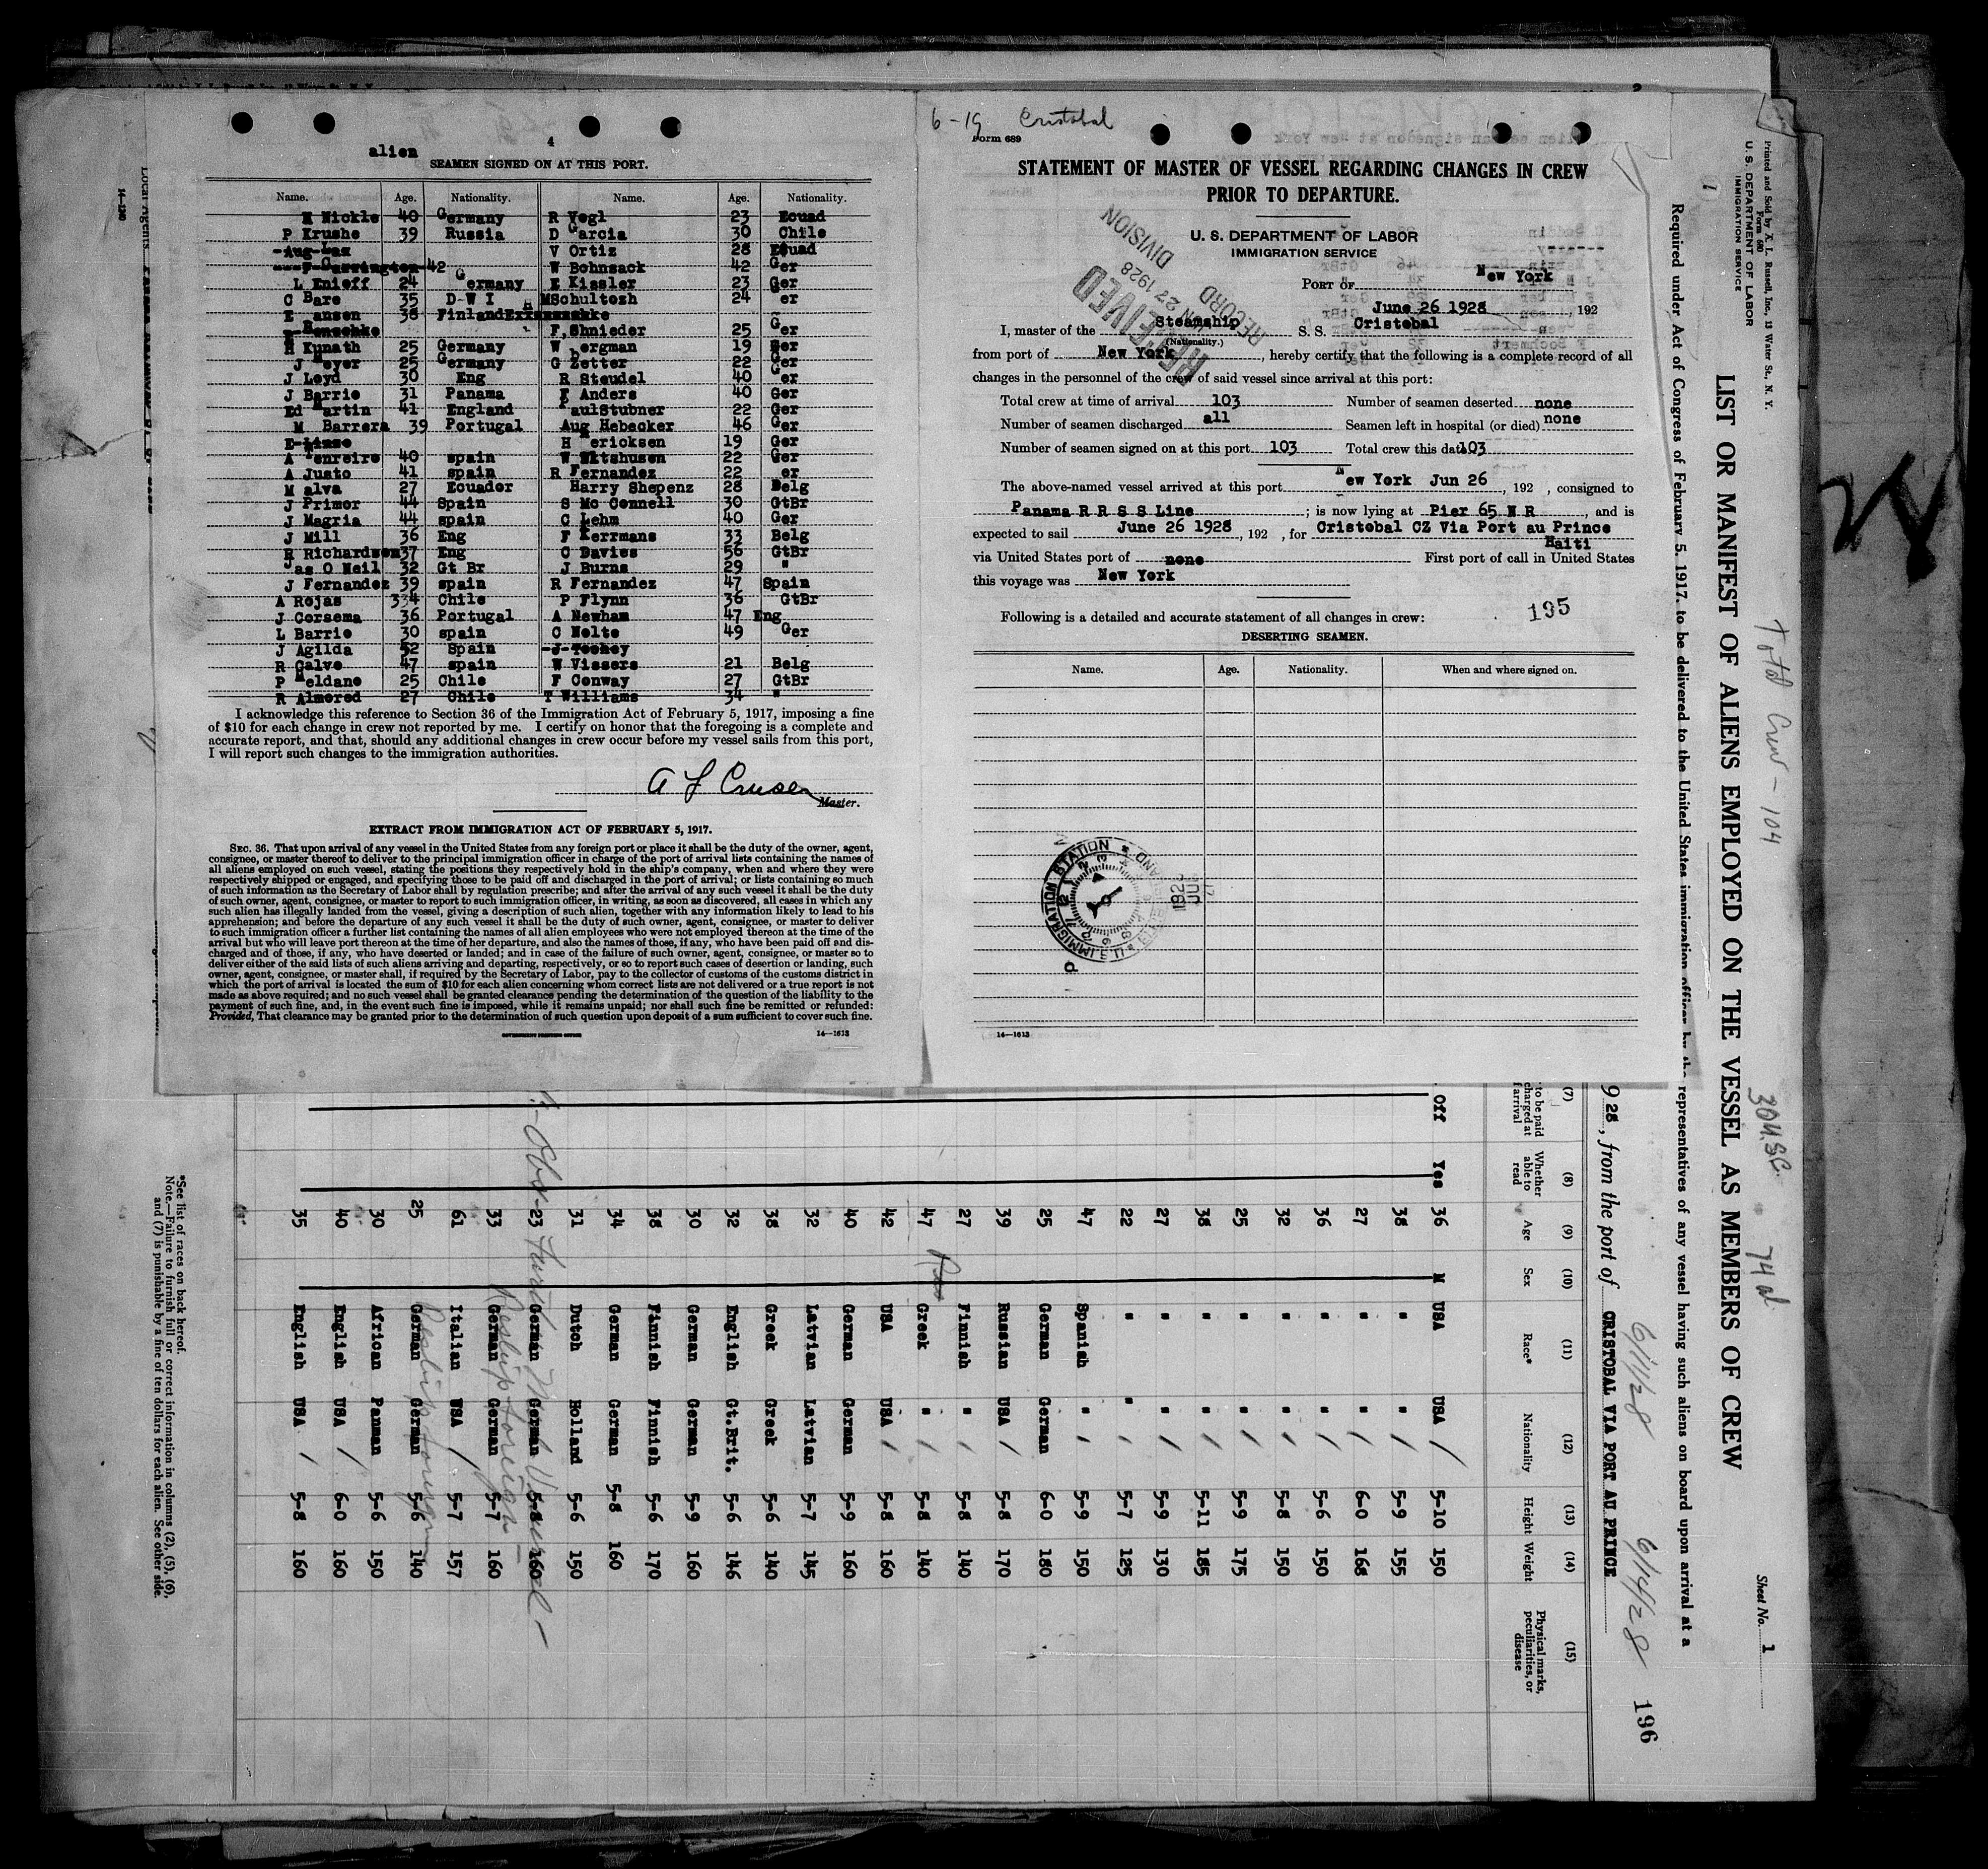 4
alien
SEAMEN SIGNED ON AT THIS PORT.
Name. Age. Nationality. Name. Age. Nationality.
H Nickle 40 Germany R Vogl 23 Ecuad
P Krushe 39 Russia D Garcia 30 Chile
Aug Lax V Ortiz 28 Ecuad
42 W Bohnsack 42 Ger
L Enieff 24 Germany E Kissler 23 Ger
C Bare 35 D-W I MSchultozh 24 er
E ansen 38 Finland
F,Shnieder 25 Ger
H Kunath 25 Germany W Bergman 19 Ger
J Meyer 25 Germany G Zetter 22 Ger
J Loyd 30 Eng R Steudel 40 er
J Barrie 31 Panama E Anders 40 Ger
Ed Martin 41 England PaulStubner 22 Ger
M Barrera 39 Portugal Aug Hebecker 46 Ger
H Mericksen 19 Ger
A Tenreire 40 spain W Witshusen 22 Ger
A Justo 41 spain R Fernandez 22 er
M alva 27 Ecuador Harry Shepenz 28 Belg
J Primor 44 Spain S Mc Connell 30 GtBr
J Magria 44 spain C Lehm 40 Ger
J Mill 36 Eng F Kerrmans 33 Belg
R Richardson37 Eng C Davies 56 GtBr
Jas O Neil 32 Gt Br J Burns 29 "
J Fernandez 39 spain R Fernandez 47 Spain
A Rojas 334 Chile P Flynn 36 GtBr
J Corsema 36 Portugal A Newham 47 Eng
L Barrio 30 spain C Nolte 49 Ger
J Agilda 52 Spain J Toohey
R Galvo 47 spain W Vissers 21 Belg
P Meldane 25 Chile F Conway 27 GtBr
R Almored 27 Chile T Williams 34 "
I acknowledge this reference to Section 36 of the Immigration Act of February 5, 1917, imposing a fine
of $10 for each change in crew not reported by me. I certify on honor that the foregoing is a complete and
accurate report, and that, should any additional changes in crew occur before my vessel sails from this port,
I will report such changes to the immigration authorities.
A L Cruser
Master.
EXTRACT FROM IMMIGRATION ACT OF FEBRUARY 5, 1917.
SEC. 36. That upon arrival of any vessel in the United States from any foreign port or place it shall be the duty of the owner, agent,
consignee, or master thereof to deliver to the principal immigration officer in charge of the port of arrival lists containing the names of
all aliens employed on such vessel, stating the positions they respectively hold in the ship's company, when and where they were
respectively shipped or engaged, and specifying those to be paid off and discharged in the port of arrival; or lists containing so much
of such information as the Secretary of Labor shall by regulation prescribe; and after the arrival of any such vessel it shall be the duty
of such owner, agent, consignee, or master to report to such immigration officer, in writing, as soon as discovered, all cases in which any
such alien has illegally landed from the vessel, giving a description of such alien, together with any information likely to lead to his
apprehension; and before the departure of any such vessel it shall be the duty of such owner, agent, consignee, or master to deliver
to such immigration officer a further list containing the names of all alien employees who were not employed thereon at the time of the
arrival but who will leave port thereon at the time of her departure, and also the names of those, if any, who have been paid off and dis-
charged and of those, if any, who have deserted or landed; and in case of the failure of such owner, agent, consignee, or master so to
deliver either of the said lists of such aliens arriving and departing, respectively, or so to report such cases of desertion or landing, such
owner, agent, consignee, or master shall, if required by the Secretary of Labor, pay to the collector of customs of the customs district in
which the port of arrival is located the sum of $10 for each alien concerning whom correct lists are not delivered or a true report is not
made as above required; and no such vessel shall be granted clearance pending the determination of the question of the liability to the
payment of such fine, and, in the event such fine is imposed, while it remains unpaid; nor shall such fine be remitted or refunded:
Provided, That clearance may be granted prior to the determination of such question upon deposit of a sum sufficient to cover such fine.
GOVERNMENT PRINTING OFFICE 14—1613
6-19 Cristobal
Form 689
STATEMENT OF MASTER OF VESSEL REGARDING CHANGES IN CREW
PRIOR TO DEPARTURE.
U. S. DEPARTMENT OF LABOR
IMMIGRATION SERVICE
RECEIVED
JUN 27 1928
RECORD DIVISION
PORT OF New York
June 26 1928, 192
I, master of the Steamship S. S. Cristobal
(Nationality.)
from port of New York, hereby certify that the following is a complete record of all
changes in the personnel of the crew of said vessel since arrival at this port:
Total crew at time of arrival 103 Number of seamen deserted none
Number of seamen discharged all Seamen left in hospital (or died) none
Number of seamen signed on at this port 103 Total crew this date 103
The above-named vessel arrived at this port New York Jun 26, 192 , consigned to
Panama R R S S Line ; is now lying at Pier 65 N R , and is
expected to sail June 26 1928, 192 , for Cristobal CZ Via Port au Prince
Haiti
via United States port of none First port of call in United States
this voyage was New York
195
Following is a detailed and accurate statement of all changes in crew:
DESERTING SEAMEN.
Name. Age. Nationality. When and where signed on.
U.S. IMMIGRATION STATION
14—1613
Printed and Sold by X. L. Russell, Inc., 13 Water St., N. Y.
Form 680
U. S. DEPARTMENT OF LABOR
IMMIGRATION SERVICE
Total Crew - 104
30 USC.
74 al
Sheet No. 1
LIST OR MANIFEST OF ALIENS EMPLOYED ON THE VESSEL AS MEMBERS OF CREW
Required under Act of Congress of February 5, 1917, to be delivered to the United States immigration officer by the representatives of any vessel having such aliens on board upon arrival at a
6/11/28 6/14/28 196
928, from the port of CRISTOBAL VIA PORT AU PRINCE
(7) (8) (9) (10) (11) (12) (13) (14) (15)
to be paid charged at arrival Whether able to read Age Sex Race* Nationality Height Weight Physical marks, peculiarities, or disease
Off Yes 36 M USA USA 5-10 150
38 " " 5-9 155
27 " " 6-0 168
36 " " 5-6 150
32 " " 5-8 150
25 " " 5-9 175
38 " " 5-11 185
27 " " 5-9 130
22 " " 5-7 125
47 Spanish " 5-9 150
25 German German 6-0 180
39 Russian USA 5-8 170
27 Finnish " 5-8 140
47 Greek " 5-8 140
42 USA USA 5-8 160
40 German German 5-9 160
32 Latvian Latvian 5-7 145
38 Greek Greek 5-6 140
32 English Gt.Brit. 5-6 146
30 German German 5-9 160
38 Finnish Finnish 5-6 170
34 German German 5-8 160
31 Dutch Holland 5-6 150
23 German German 5-8 160
33 German German 5-7 160
Reship foreign
61 Italian USA 5-7 157
25 German German 5-6 140
Reship foreign
30 African Panman 5-6 150
40 English USA 6-0 160
35 English USA 5-8 160
*See list of races on back hereof.
Note.—Failure to furnish full or correct information in columns (2), (5), (6),
and (7) is punishable by a fine of ten dollars for each alien. See other side.
14-120